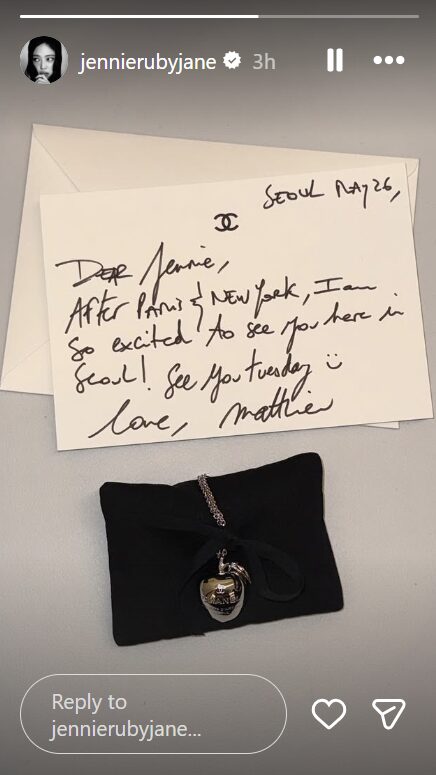 jennierubyjane 3h
SEOUL MAY 26,
DEAR Jennie,
AFTER PARIS & NEW YORK, I am
so excited to see you here in
Seoul! See you tuesday :)
love, Matthieu
CHANEL
Reply to
jennierubyjane...